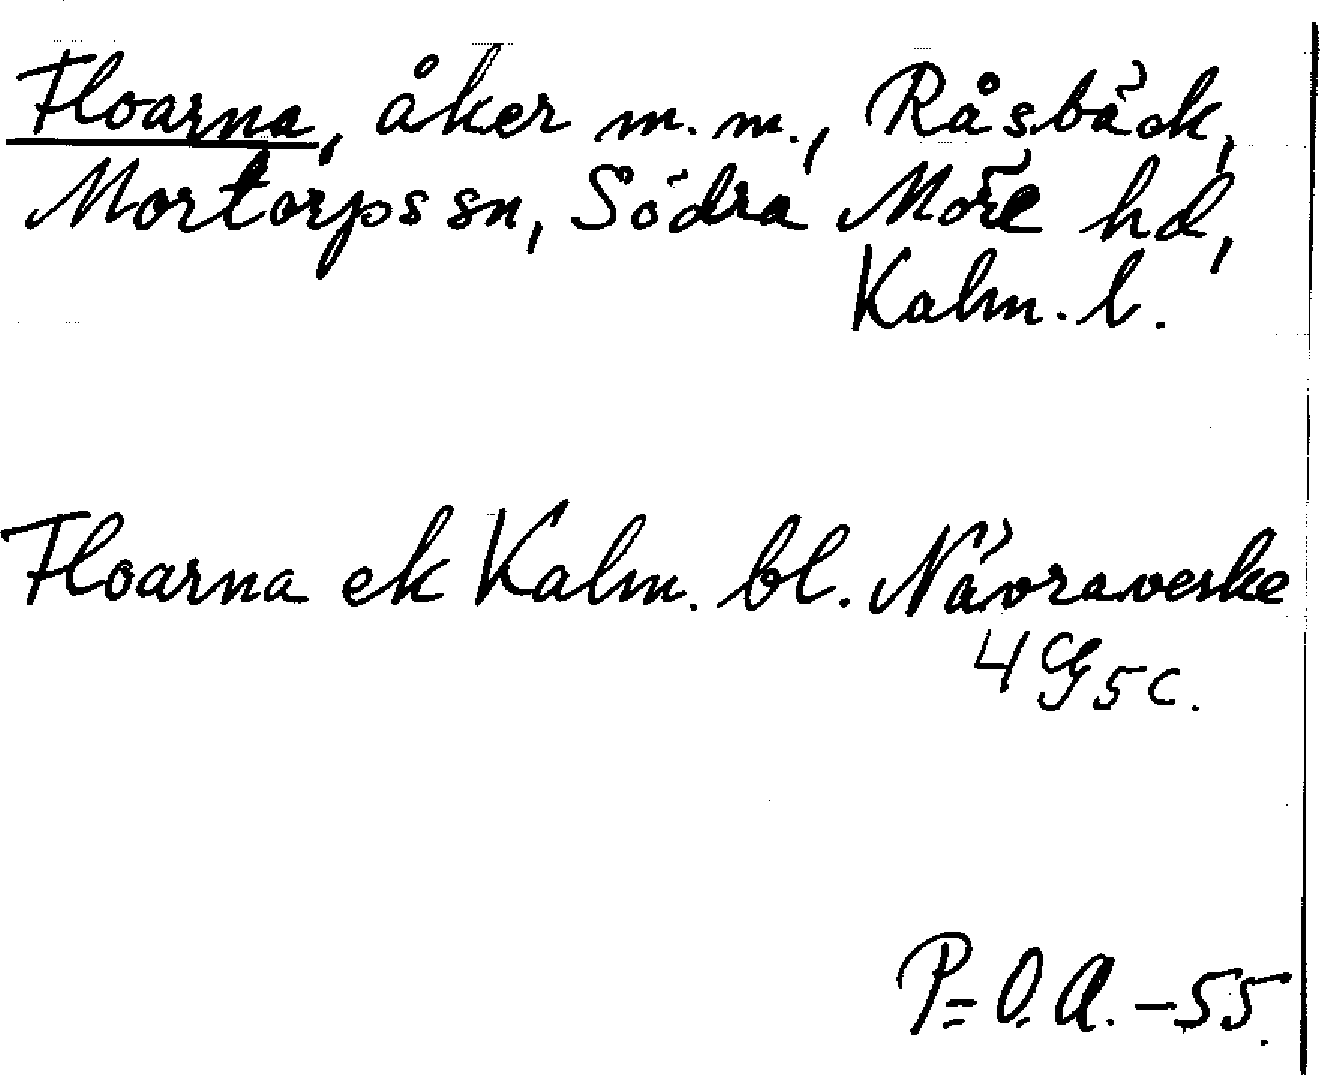 Floarna, åker m. m., Råsbäck,
Mortorps sn, Södra Möre hd,
Kalm. l.
Floarna ek Kalm. bl. Nävraverke
4 G 5 c.
P=O. A. -55.